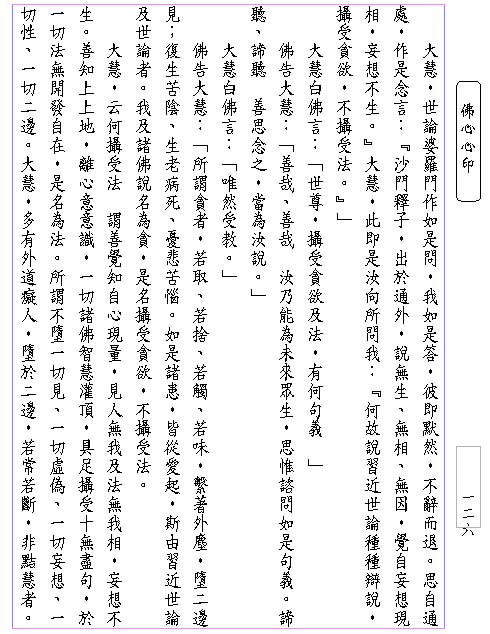 大慧，世論婆羅門作如是問，我如是答，彼即默然，不辭而退。思自通
處，作是念言：『沙門釋子，出於通外，說無生、無相、無因，覺自妄想現
相，妄想不生。』大慧，此即是汝向所問我：『何故說習近世論種種辯說，
攝受貪欲，不攝受法。』」
大慧白佛言：「世尊，攝受貪欲及法，有何句義　」
佛告大慧：「善哉、善哉　汝乃能為未來眾生，思惟諮問如是句義。諦
聽、諦聽　善思念之，當為汝說。」
大慧白佛言：「唯然受教。」
佛告大慧：「所謂貪者，若取、若捨、若觸、若味，繫著外塵，墮二邊
見；復生苦陰、生老病死、憂悲苦惱。如是諸患，皆從愛起，斯由習近世論
及世論者。我及諸佛說名為貪，是名攝受貪欲，不攝受法。
大慧，云何攝受法　謂善覺知自心現量，見人無我及法無我相，妄想不
生。善知上上地，離心意意識，一切諸佛智慧灌頂，具足攝受十無盡句，於
一切法無開發自在，是名為法。所謂不墮一切見、一切虛偽、一切妄想、一
切性、一切二邊。大慧，多有外道癡人，墮於二邊，若常若斷，非黠慧者。
佛心心印
一二六